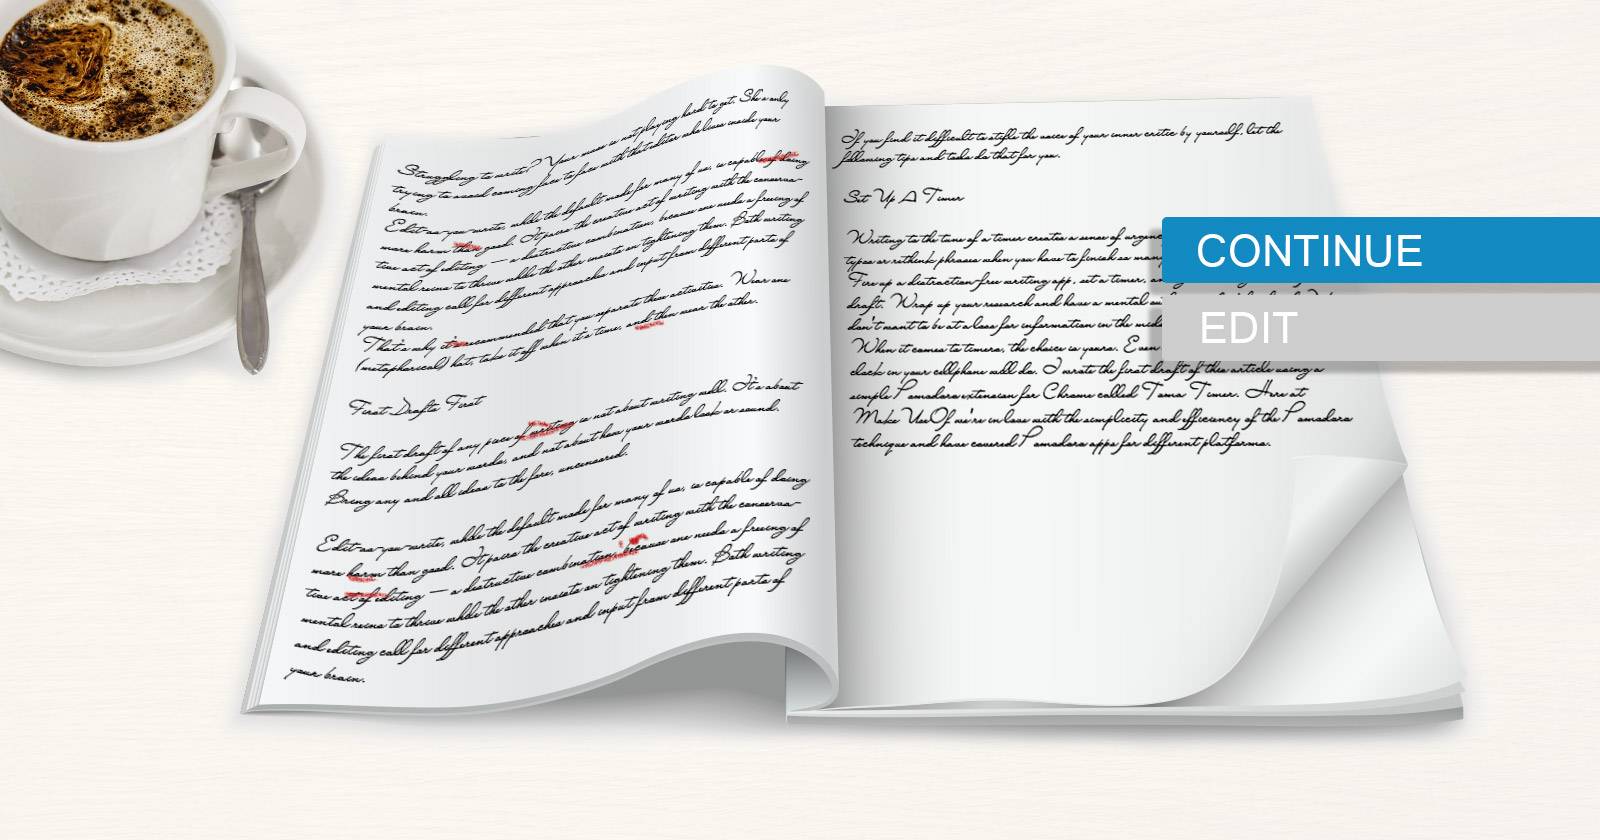 Struggling to write? Your muse is not playing hard to get. She's only
trying to avoid coming face to face with that editor who lives inside your
brain.
Edit-as-you-write, while the default mode for many of us, is capable of doing
more harm than good. It pairs the creative act of writing with the conserva-
tive act of editing — a destructive combination, because one needs a freeing of
mental reins to thrive while the other insists on tightening them. Both writing
and editing call for different approaches and input from different parts of
your brain.
That's why it's recommended that you separate these activities. Wear one
(metaphorical) hat, take it off when it's time, and then wear the other.
First Drafts First
The first draft of any piece of writing is not about writing well. It's about
the ideas behind your words, and not about how your words look or sound.
Bring any and all ideas to the fore, uncensored.
Edit-as-you-write, while the default mode for many of us, is capable of doing
more harm than good. It pairs the creative act of writing with the conserva-
tive act of editing — a destructive combination, because one needs a freeing of
mental reins to thrive while the other insists on tightening them. Both writing
and editing call for different approaches and input from different parts of
your brain.
If you find it difficult to stifle the voice of your inner critic by yourself, let the
following tips and tools do that for you.
Set Up A Timer
Writing to the tune of a timer creates a sense of
typos or rethink phrases when you have to finish as many
Fire up a distraction-free writing app, set a timer,
draft. Wrap up your research and have a mental
don't want to be at a loss for information in the
When it comes to timers, the choice is yours. Even
clock in your cellphone will do. I wrote the first draft of this article using a
simple Pomodoro extension for Chrome called Toma Timer. Here at
MakeUseOf we're in love with the simplicity and efficiency of the Pomodoro
technique and have covered Pomodoro apps for different platforms.
CONTINUE
EDIT